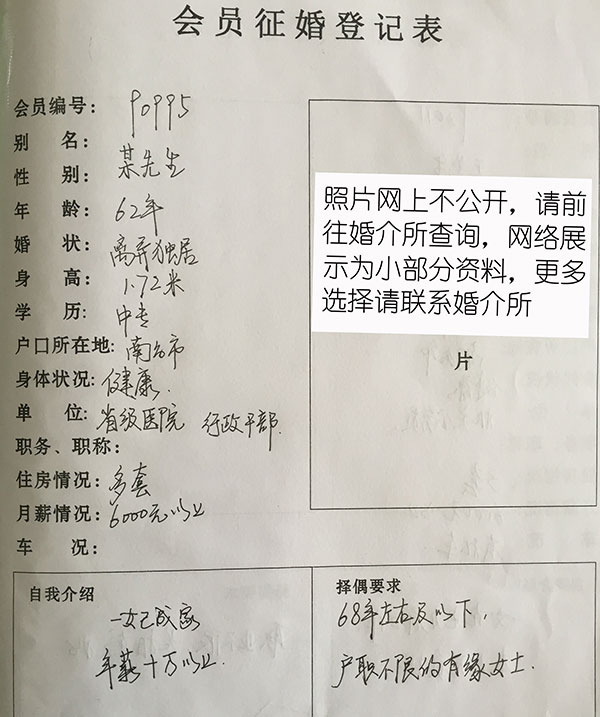 会员征婚登记表
会员编号: 90995
别 名:
性 别: 某先生
年 龄: 62年
婚 状: 离异独居
身 高: 1.72米
学 历: 中专
户口所在地: 南昌市
身体状况: 健康.
单 位: 省级医院 行政干部.
职务、职称:
住房情况: 多套
月薪情况: 6000元以上
车 况:
照片网上不公开，请前
往婚介所查询，网络展
示为小部分资料，更多
选择请联系婚介所
片
自我介绍
一女已成家
年薪十万以上.
择偶要求
68年左右及以下,
户职不限的有缘女士.